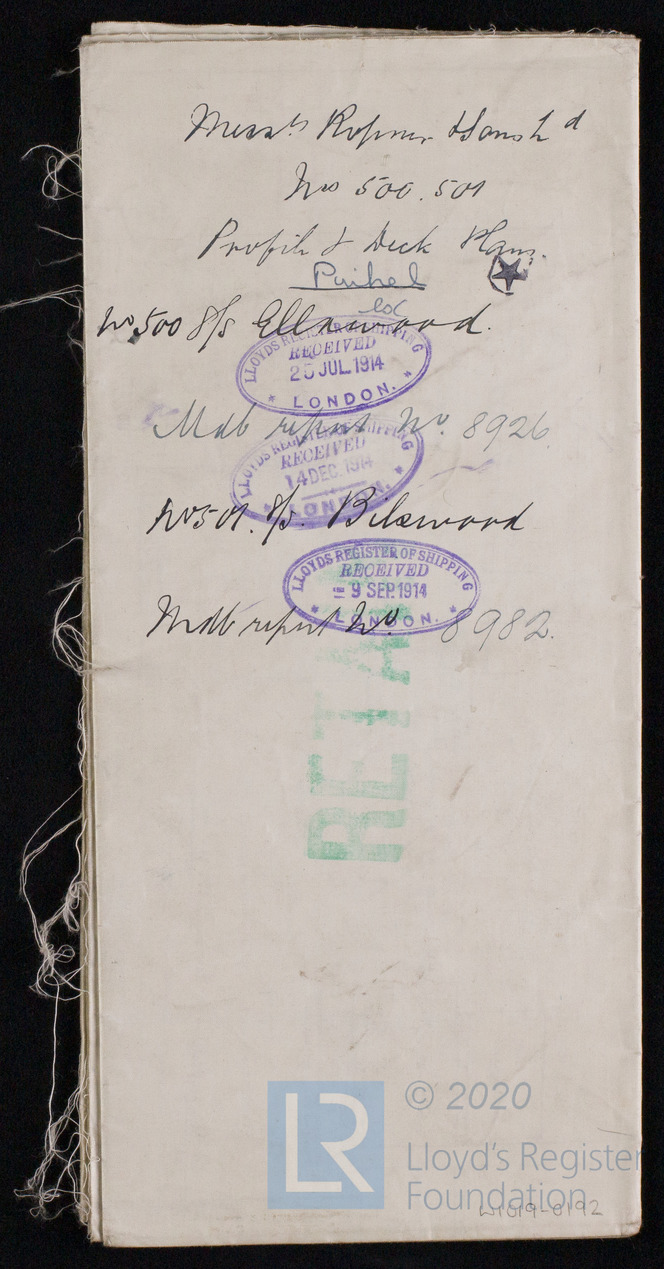 Messrs Ropner & Sons Ld
Nos 500.501
Profile & Deck Plans.
No 500 S/S Ellawood.
LLOYDS REGISTER OF SHIPPING
RECEIVED
JUL 1914
LONDON.
Mdb report No. 8926.
LLOYDS REGISTER OF SHIPPING
RECEIVED
14 DEC. 1914
LONDON.
No 501. S/S. Bilswood
LLOYDS REGISTER OF SHIPPING
RECEIVED
9 SEP. 1914
LONDON.
Mdb report No 8982.
RETA
LR
© 2020
Lloyd's Register
Foundation
W1019-0192